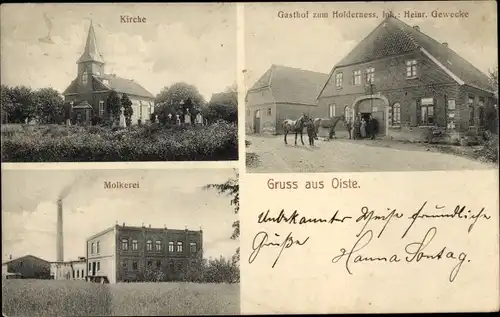 Kirche
Gasthof zum Holderness, Inh.: Heinr. Gewecke
Molkerei
Gruss aus Oiste.
Unbekannter Weise freundliche
Grüße Hanna Sontag